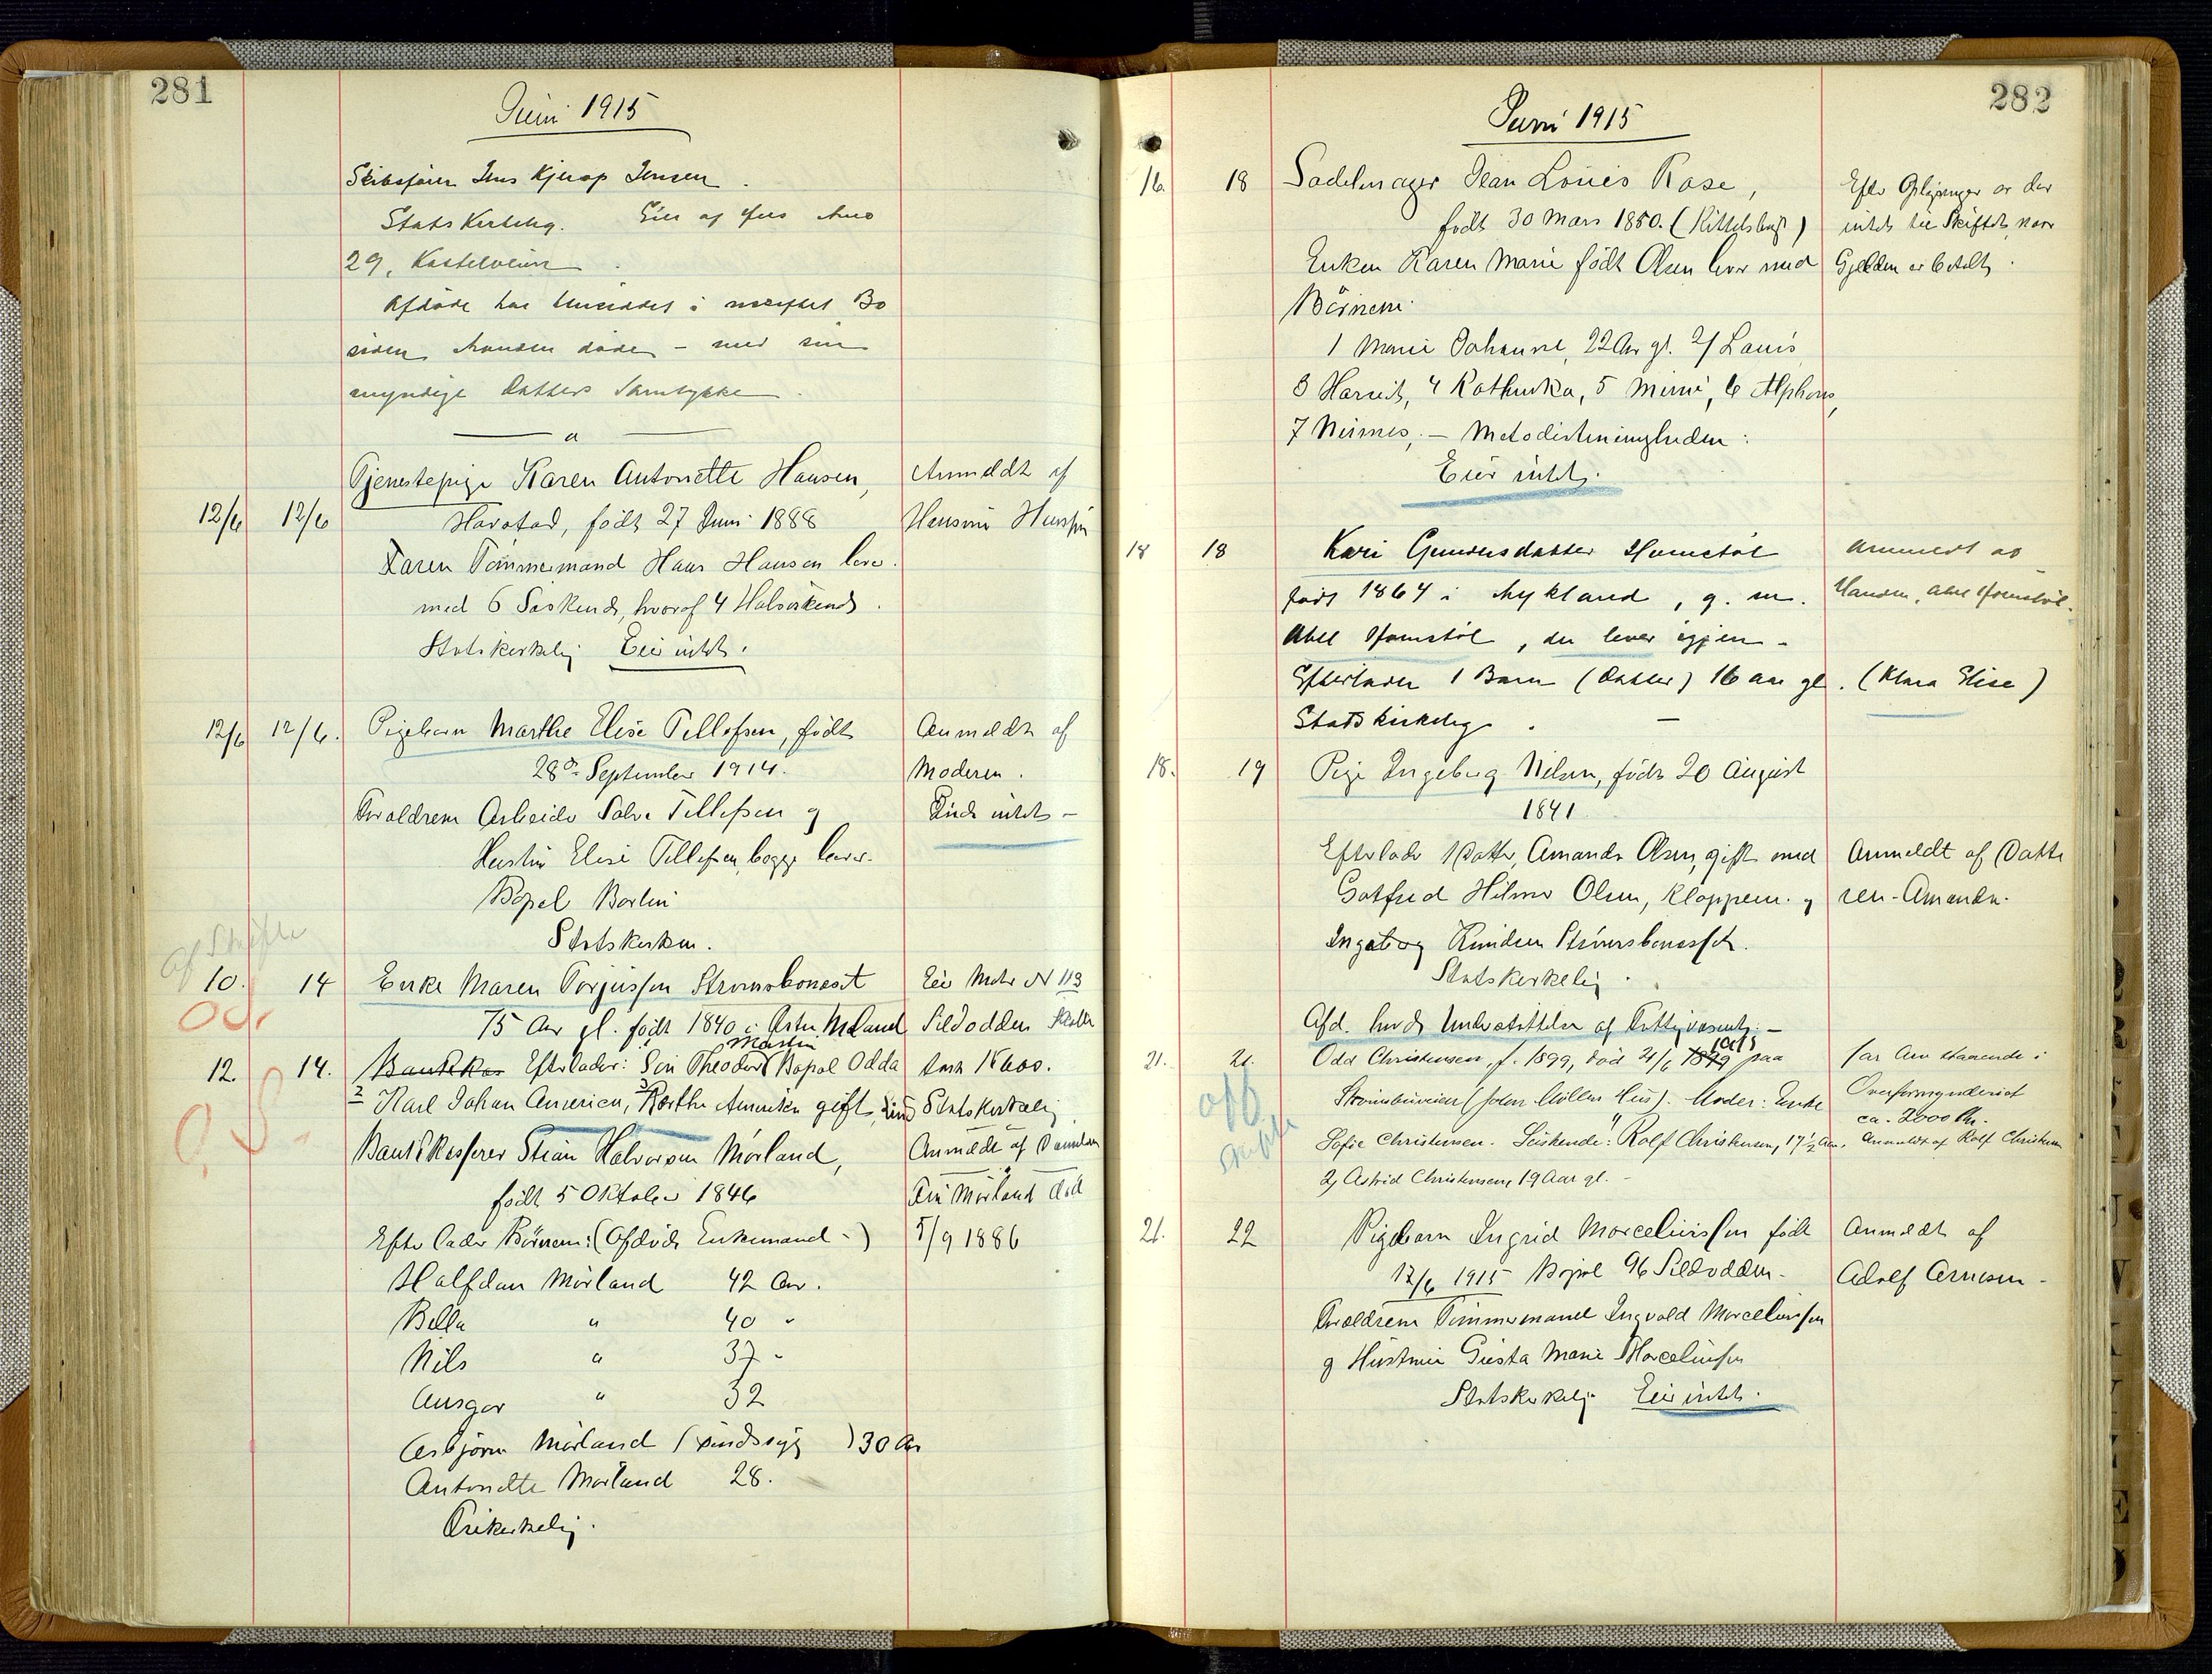 281
Juni 1915
Skibsfører Jens Kjerop Jensen.
Statskirkelig. Eier af Hus No
29, Kastelveien
Afdøde har hensiddet i uskiftet Bo
siden Manden døde – med sin
myndige Datters Samtykke.
Tjenestepige Karen Antonette Hansen, Anmeldt af
12/6 12/6 Harstad, født 27 Juni 1888
Faren Tømmermand Hans Hansen lever.
med 6 Søskende, hvoraf 4 Halvsøskende.
Statskirkelig Eier intet.
12/6 12/6. Pigebarn Marthe Elise Tellefsen, født Anmeldt af
28de September 1914. Moderen.
Forældrene Arbeider Salve Tellefsen og Eiede intet –
Hustru Elise Tellefsen, begge lever.
Bopel Barlin
Statskirken.
Af Skifte
10. 14 Enke Maren Torjussen Strømsboneset Eier Matr N 113
75 Aar gl. født 1840 i Østre Moland Sildodden
Martin
12. 14. Bankkas Efterlader: Søn Theodor Bopæl Odda Takst 1600.
2 Karl Johan Amerika, 3 Berthe Amerika gift, Statskirkelig
Bankkasserer Stian Halvorsen Mørland, Anmeldt af
født 5 Oktober 1846 Fru Mørland død
Efterlader Børnene: (Afdøde Enkemand –) 5/9 1886
Halfdan Mørland 42 Aar.
Bella " 40 "
Nils " 37 –
Ansgar " 32
Asbjørn Mørland (sindssyg) 30 Aar
Antonette Mørland 28.
Frikirkelig.
282
Juni 1915
16. 18 Sadelmager Jean Louis Rase, Efter Opgivende er der
født 30 Mars 1850. (Kittelsbugt) intet til Skifte, naar
Enken Karen Marie født Olsen lever med Gjelden er betalt.
Børnene
1 Marie Johanne, 22 Aar gl. 2/ Louis,
3 Harriet, 4 Kathinka, 5 Mimi, 6 Alphons,
7 – Metodistmenigheden:
Eier intet.
18 18 Kari Gunvorsdatter Homstøl Anmeldt av
født 1864 i Mykland, g. m. Manden, Abel Homstøl.
Abel Homstøl, der lever igjen –
Efterlader 1 Barn (Datter) 16 aar gl. (Klara Elise)
Statskirkelig. –
18. 19 Pige Ingeborg Nilsen, født 20 August
1841
Efterlader 1 Datter, Amanda Olsen, gift med Anmeldt af Datte
Gotfred Hilmer Olsen, Kloppene. og ren – Amanda.
Ingeborg Knudsen Strømsbonesset.
Statskirkelig.
Afd. havde Understøttelse af Fattigvæsenet: –
21. 21. Odd Christensen, f. 1899, død 21/6 1899 1915 paa har Arv staaende i
Strømsbuveien (John Møllers Hus). Moder: Enke Overformynderiet
ca. 2000 Kr.
Sofie Christensen. Søskende: Rolf Christensen, 17½ Aar, Anmeldt af Rolf Christensen
2, Astrid Christensen, 19 Aar gl. –
Off Skifte
21. 22 Pigebarn Ingrid Marceliussen født Anmeldt af
12/6 1915 Bopæl 96 Sildodden – Adolf Arnesen –
Forældrene Tømmermand Ingvald Marceliussen
og Hustru Gusta Marie Marceliussen
Statskirkelig Eier intet.